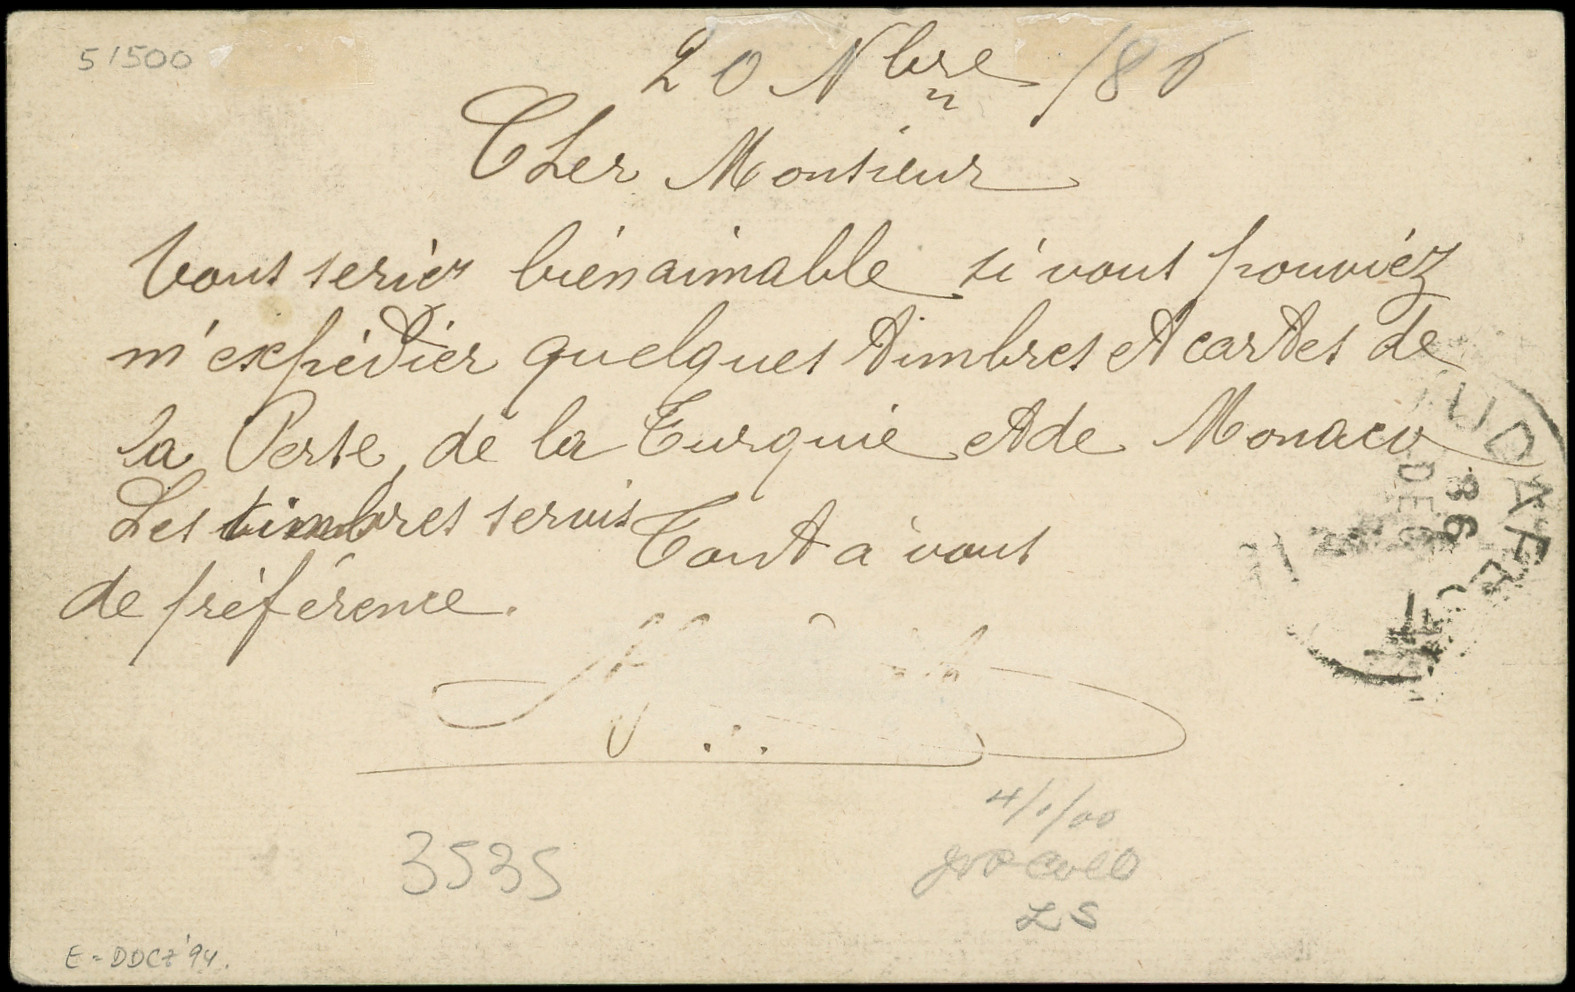 51500
20 Nbre /86
Cher Monsieur
Vous seriez bien aimable si vous pouviez
m'expédier quelques timbres et cartes de
la Perse, de la Turquie et de Monaco
Les timbres servis
de préférence.
Tout à vous
86
DEC
3535
4/1/00
LS
E-DDCZ'94.